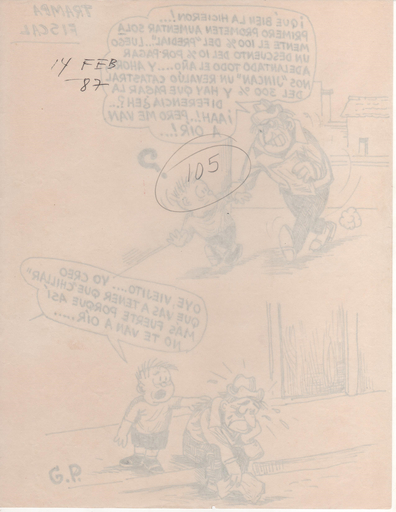 TRAMPA
FISCAL
¡QUE BIEN LA HICIERON!
PRIMERO PROMETEN AUMENTAR SOLA
MENTE EL 100% DEL "PREDIAL"... LUEGO
UN DESCUENTO DEL 10% POR PAGAR
ADELANTADO TODO EL AÑO... Y AHORA
NOS "JINCAN" UN REVALÚO CATASTRAL
DEL 300% Y HAY QUE PAGAR LA
DIFERENCIA ¿EH?
¡AAH!.. PERO ME VAN
A OIR!...
14 FEB
87
?
105
OYE, VIEJITO.... YO CREO
QUE VAS A TENER QUE CHILLAR
MAS FUERTE PORQUE ASI
NO TE VAN A OÍR.....
G.P.